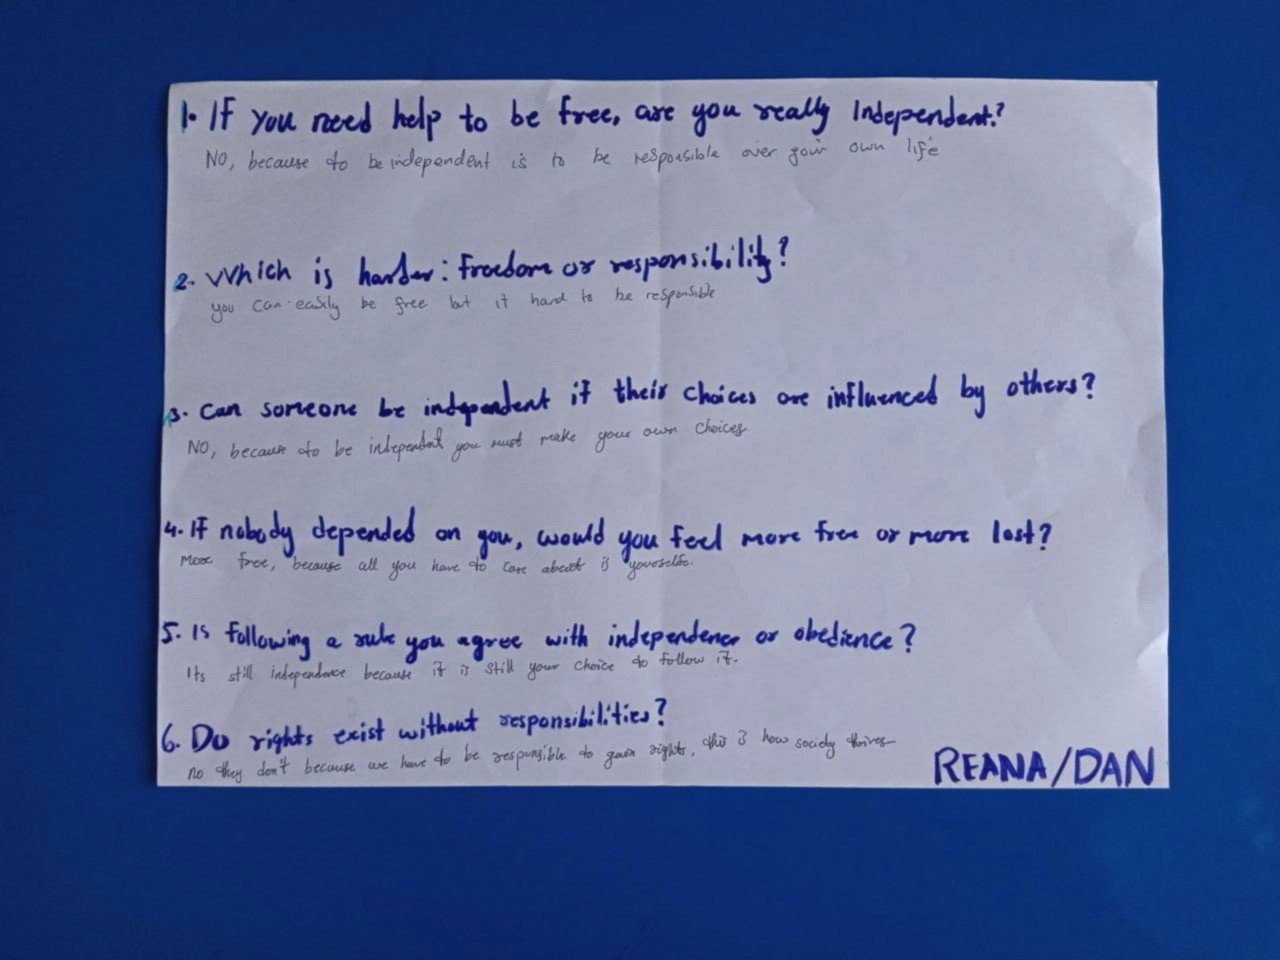 1. If you need help to be free, are you really Independent?
NO, because to be independent is to be responsible over your own life
2. Which is harder: freedom or responsibility?
you can easily be free but it hard to be responsible
3. Can someone be independent if their choices are influenced by others?
NO, because to be independent you must make your own choices.
4. If nobody depended on you, would you feel more free or more lost?
More free, because all you have to care about is
5. Is following a rule you agree with independence or obedience?
Its still independence because it is still your choice to follow it.
6. Do rights exist without responsibilities?
no they don't because we have to be responsible to gain rights, this is how society thrives
REANA/DAN